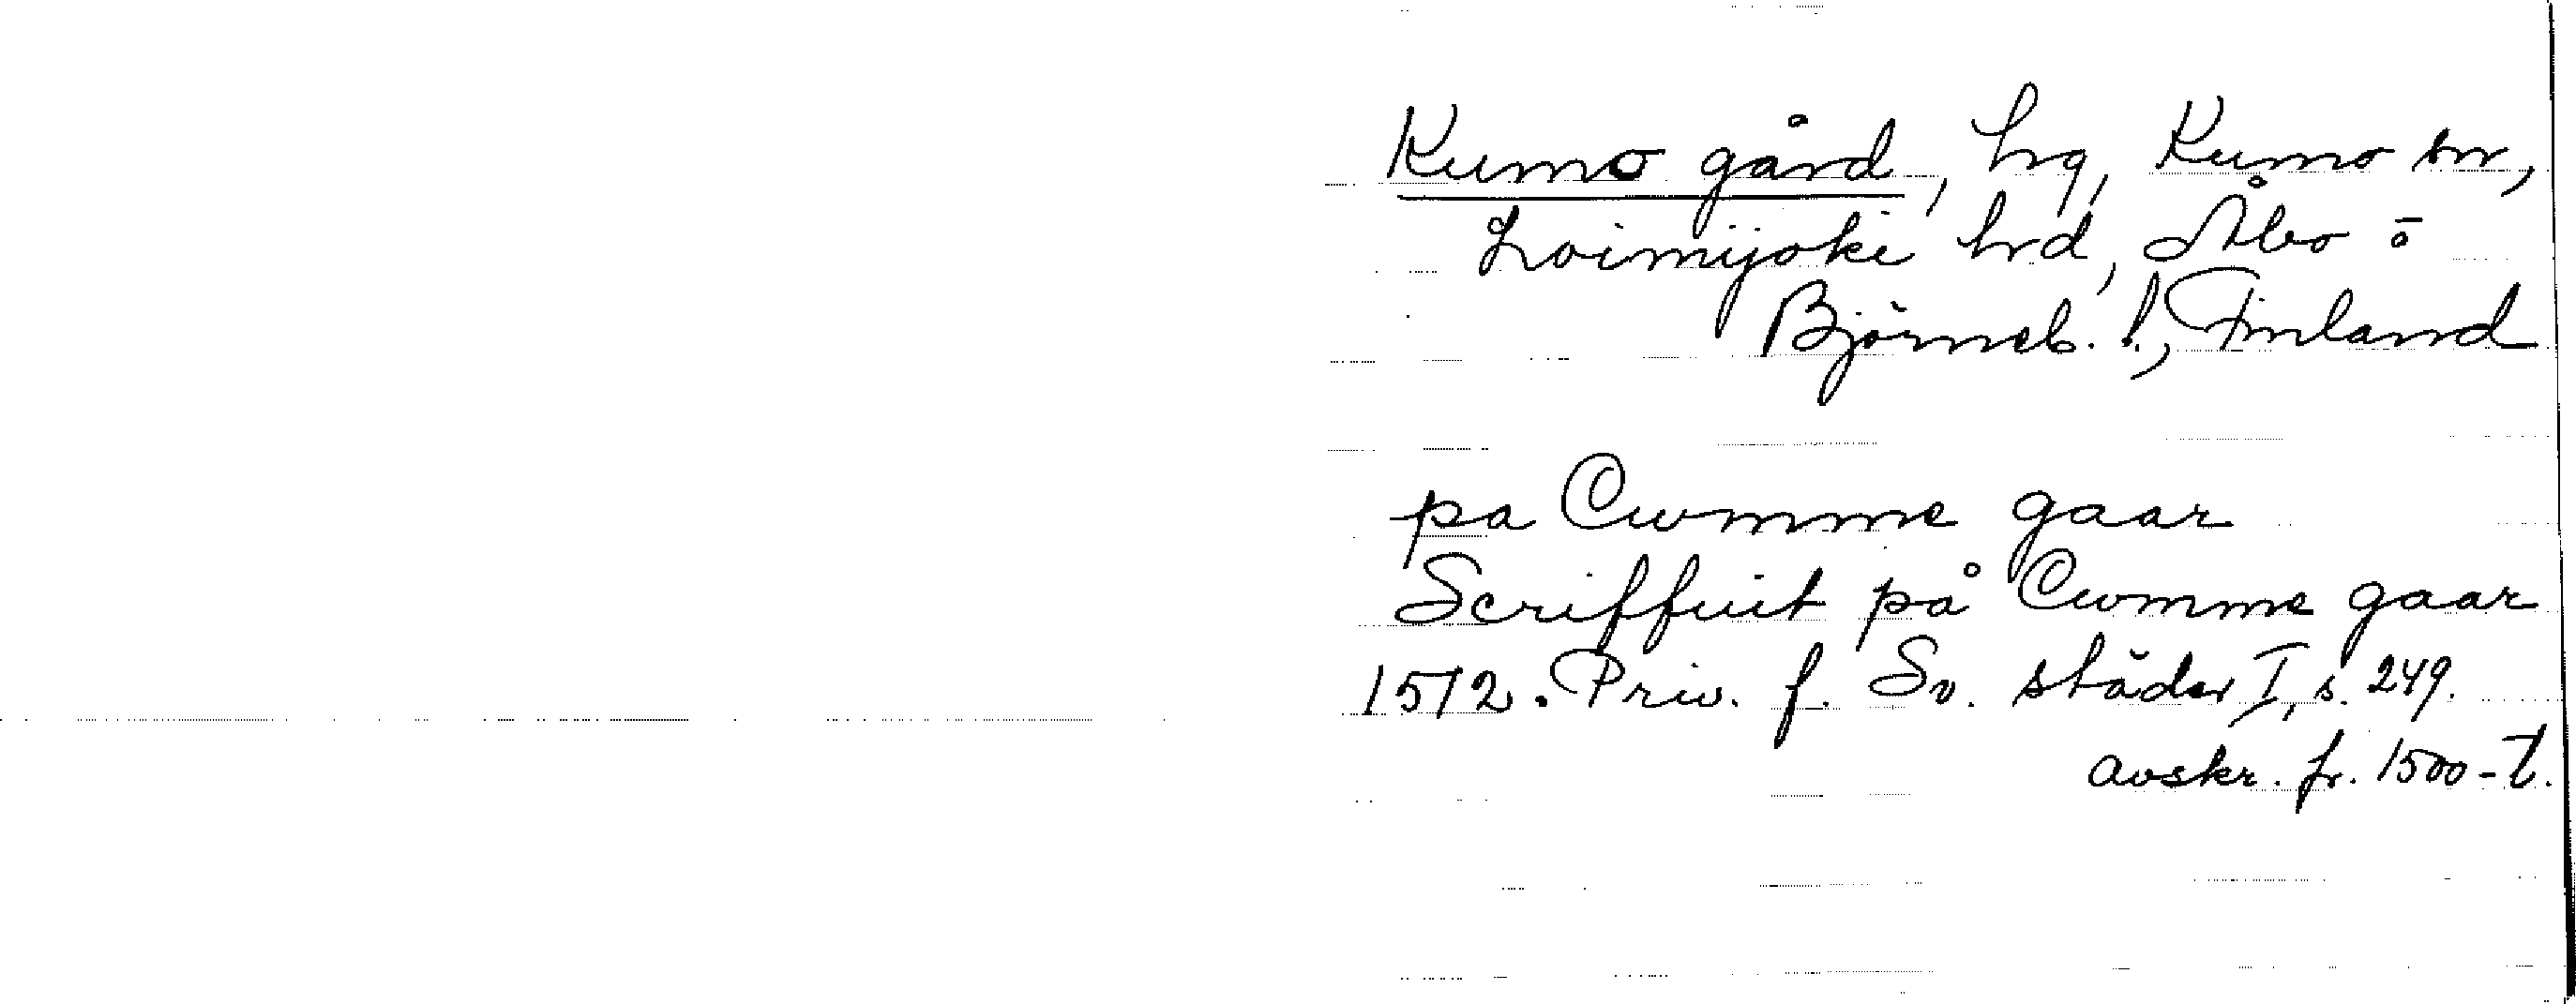 Kumo gård, hg, Kumo sn,
Loimijoki hd, Åbo o
Björneb. l., Finland
pa Cwmme gaar
Scriffuit på Cwmme gaar
1572. Priv. f. Sv. städer I, s. 249.
avskr. fr. 1500-t.